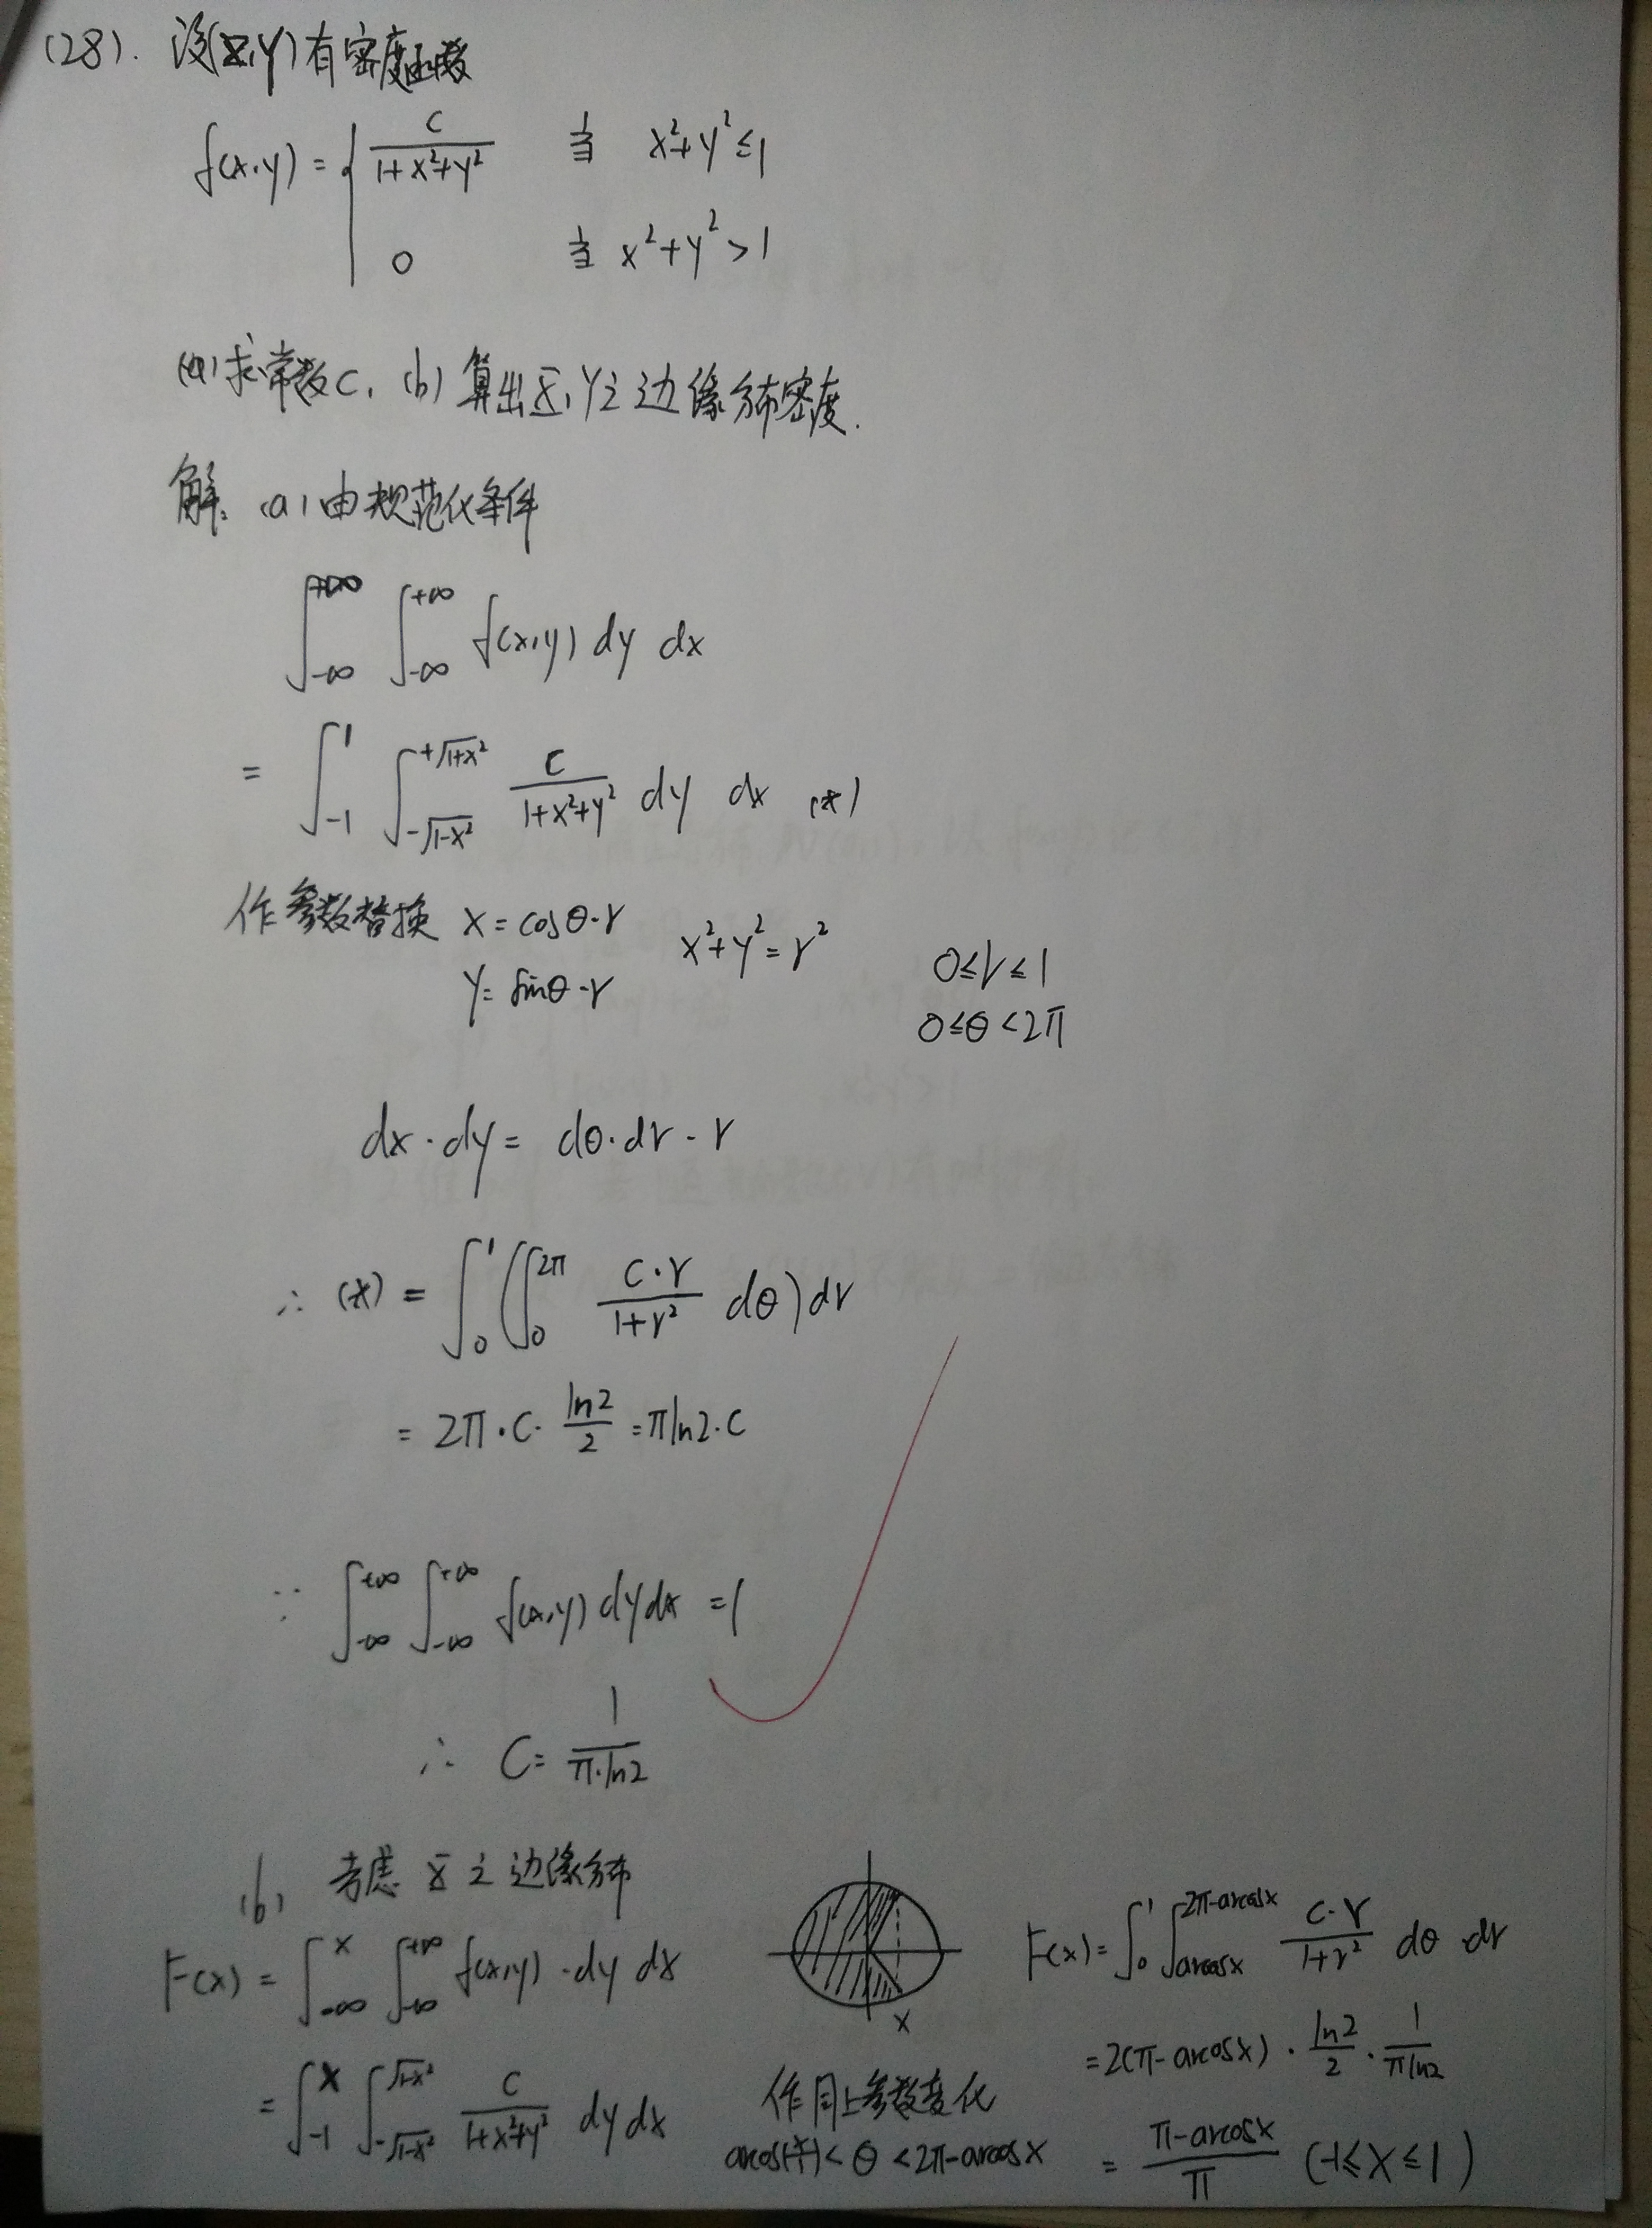 (28). 设(X,Y)有密度函数
f(x,y) = { C/(1+x²+y²) 当 x²+y²≤1
0 当 x²+y²>1
(a)求常数C, (b)算出X,Y之边缘分布密度.
解: (a)由规范化条件
∫_{-∞}^{+∞} ∫_{-∞}^{+∞} f(x,y) dy dx
= ∫_{-1}^{1} ∫_{-√(1-x²)}^{+√(1+x²)} C/(1+x²+y²) dy dx (*)
作参数替换 x = cosθ·r x²+y²=r² 0≤r≤1
y= sinθ·r 0≤θ<2π
dx·dy = dθ·dr·r
∴ (*) = ∫_0^1 (∫_0^{2π} C·r/(1+r²) dθ) dr
= 2π·C· ln2/2 = πln2·C
∵ ∫_{-∞}^{+∞} ∫_{-∞}^{+∞} f(x,y) dydx = 1
∴ C= 1/(π·ln2)
(b) 考虑 X 之边缘分布
F(x) = ∫_{-∞}^{x} ∫_{-∞}^{+∞} f(x,y)·dy dx
= ∫_{-1}^{x} ∫_{-√(1-x²)}^{√(1-x²)} C/(1+x²+y²) dy dx
x
作同上参数变化
<θ<2π-arccosx
F(x)= ∫_0^1 ∫_{arccosx}^{2π-arccosx} C·r/(1+r²) dθ·dr
=2(π-arccosx)· ln2/2 · 1/(πln2)
= (π-arccosx)/π (-1≤x≤1)